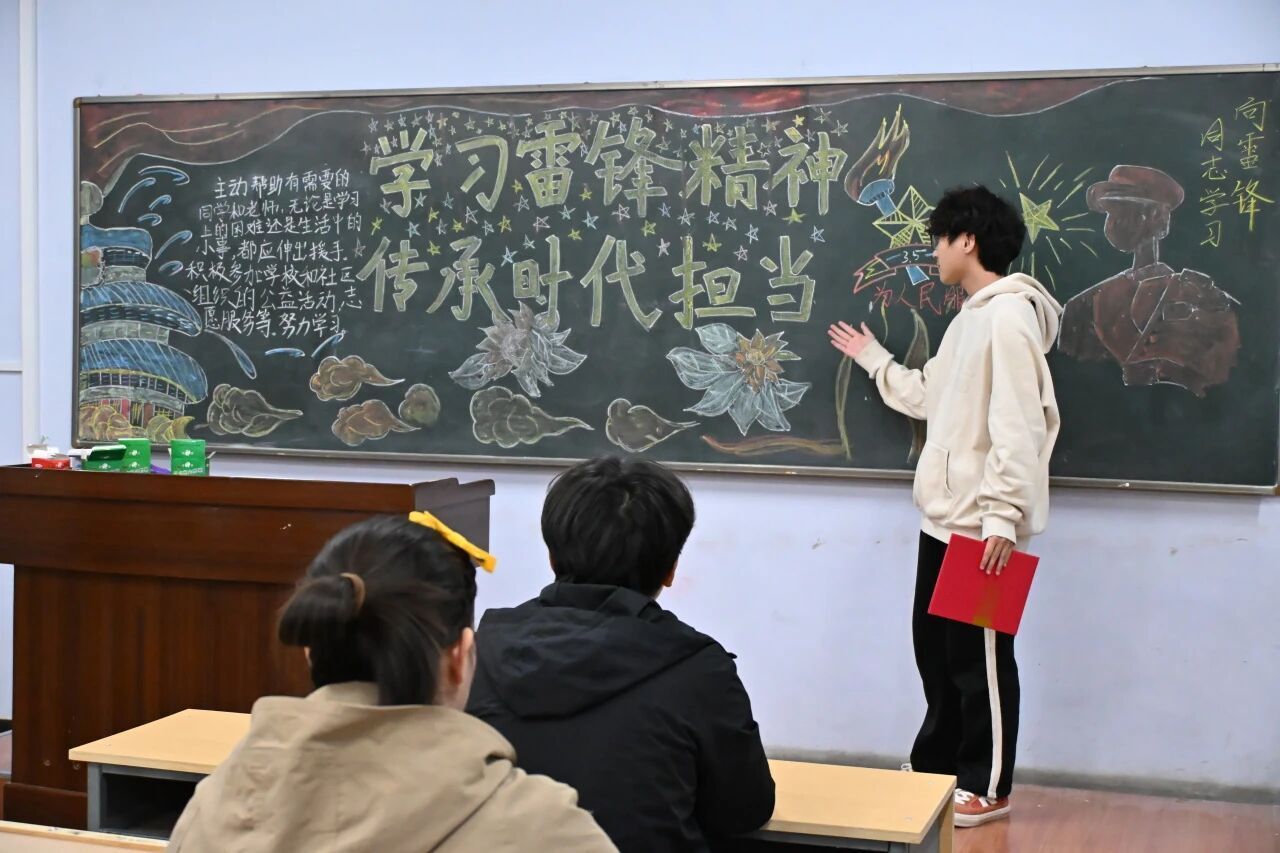 学习雷锋精神
传承时代担当
主动帮助有需要的
同学和老师,无论是学习
上的困难还是生活中的
小事,都应伸出援手.
积极参加学校和社区
组织的公益活动,志
愿服务等,努力学习
35
为人民服
向雷锋
同志学习